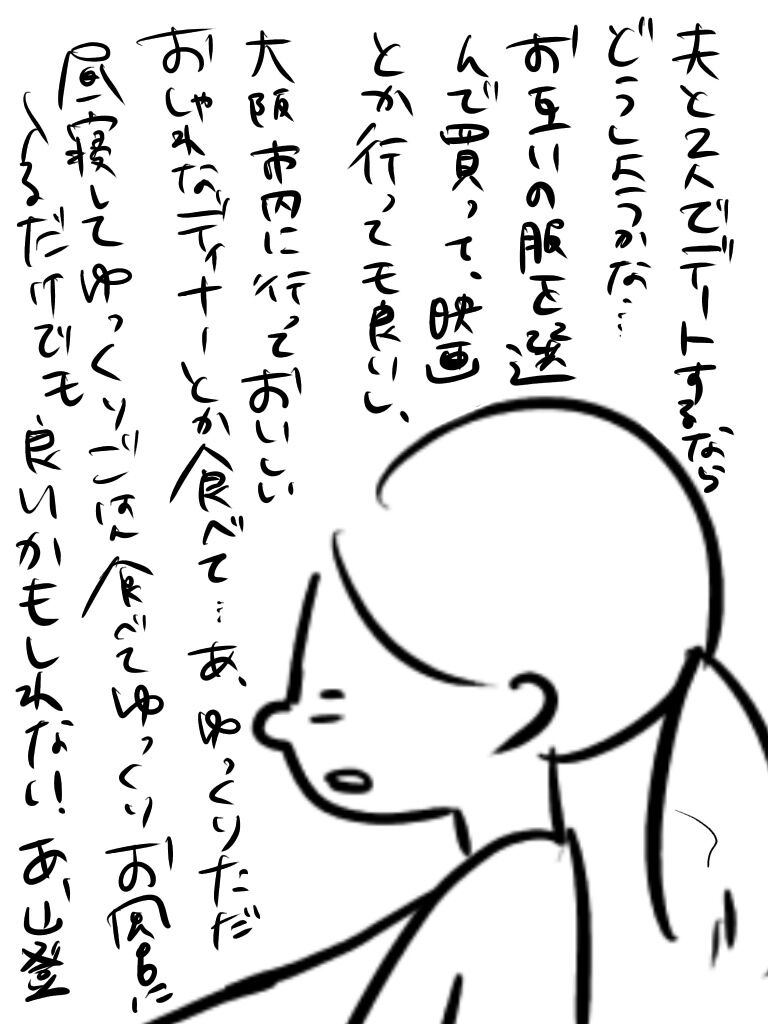 夫と2人でデートするなら
どうしようかな…
お互いの服を選
んで買って、映画
とか行っても良いし、
大阪市内に行っておいしい
おしゃれなディナーとか食べて…あ、ゆっくりただ
昼寝してゆっくりごはん食べてゆっくりお風呂に
入るだけでも良いかもしれない！あ、山登